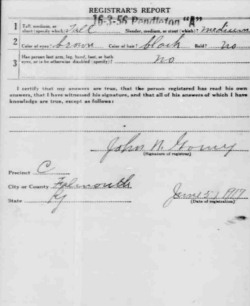 REGISTRAR'S REPORT
16-3-56 Pendleton "A"
1 Tall, medium, or short (specify which)? Tall Slender, medium, or stout (which)? medium
2 Color of eyes? brown Color of hair? black Bald? No
3 Has person lost arm, leg, hand, foot, or both eyes, or is he otherwise disabled (specify)? No
I certify that my answers are true, that the person registered has read his own
answers, that I have witnessed his signature, and that all of his answers of which I have
knowledge are true, except as follows:
John N
(Signature of registrar)
Precinct C
City or County Falmouth
State Ky
June 5, 1917
(Date of registration)